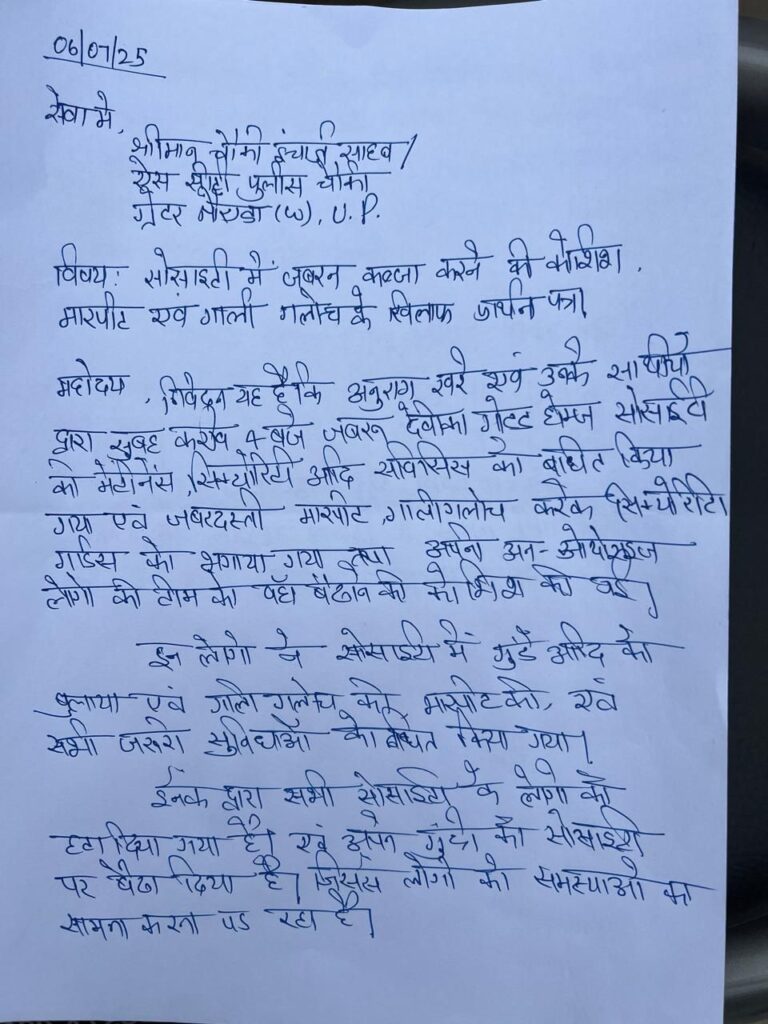 06/07/25
सेवा मे,
श्रीमान चौकी इंचार्ज साहब/
पुलिस चौकी
ग्रेटर नौएडा (W), U.P.
विषय: सोसाइटी में जबरन कब्जा करने की कोशिश,
मारपीट एवं गाली गलोच के खिलाफ प्रार्थना पत्र।
महोदय, निवेदन यह है कि अनुराग खरे एवं उनके साथीयो
द्वारा सुबह करीब 4 बजे जबरन देवीका गोल्ड होम्ज सोसाईटी
को मेंटीनेंस, सिक्योरिटी आदि सर्विसिस को बाधित किया
गया एवं जबरदस्ती मारपीट, गालीगलोच करके सिक्योरिटि
गार्डस को भगाया गया तथा अपनी अन-ओथोराइज
लोगो की टीम को वहाँ बैठाने की कोशिश की गई।
इन लोगो ने सोसाइटी में गुंडे आदि को
बुलाया एवं गाली गलोच कर मारपीट की, एवं
सभी जरूरी सुविधाओं को बाधित किया गया।
ईनके द्वारा सभी सोसाईटी के लोगो को
हटा दिया गया है। एवं अपने गुंडो को सोसाइटी
पर बैठा दिया है। जिससे लोगो को समस्याओ का
सामना करना पड रहा है।